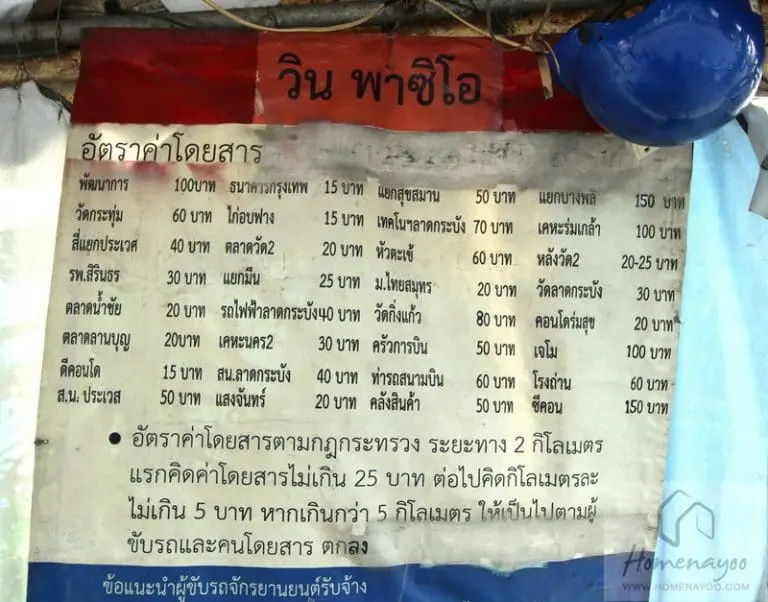 วิน พาซิโอ
อัตราค่าโดยสาร
พัฒนาการ 100บาท ธนาคารกรุงเทพ 15 บาท แยกสุขสมาน 50 บาท แยกบางพลี 150 บาท
วัดกระทุ่ม 60 บาท ไก่อบฟาง 15 บาท เทคโนฯลาดกระบัง 70 บาท เคหะร่มเกล้า 100 บาท
สี่แยกประเวศ 40 บาท ตลาดวัด2 20 บาท หัวตะเข้ 60 บาท หลังวัด2 20-25 บาท
รพ.สิรินธร 30 บาท แยกมีน 25 บาท ม.ไทยสมุทร 20 บาท วัดลาดกระบัง 30 บาท
ตลาดน้ำชัย 20 บาท รถไฟฟ้าลาดกระบัง40 บาท วัดกิ่งแก้ว 80 บาท คอนโดร่มสุข 20 บาท
ตลาดลานบุญ 20บาท เคหะนคร2 30 บาท ครัวการบิน 50 บาท เจโม 100 บาท
ดีคอนโด 15 บาท สน.ลาดกระบัง 40 บาท ท่ารถสนามบิน 60 บาท โรงถ่าน 60 บาท
ส.น. ประเวส 50 บาท แสงจันทร์ 20 บาท คลังสินค้า 50 บาท ซีคอน 150 บาท
• อัตราค่าโดยสารตามกฎกระทรวง ระยะทาง 2 กิโลเมตร
แรกคิดค่าโดยสารไม่เกิน 25 บาท ต่อไปคิดกิโลเมตรละ
ไม่เกิน 5 บาท หากเกินกว่า 5 กิโลเมตร ให้เป็นไปตามผู้
ขับรถและคนโดยสาร ตกลง
ข้อแนะนำผู้ขับรถจักรยานยนต์รับจ้าง
Homenayoo
WWW.HOMENAYOO.COM